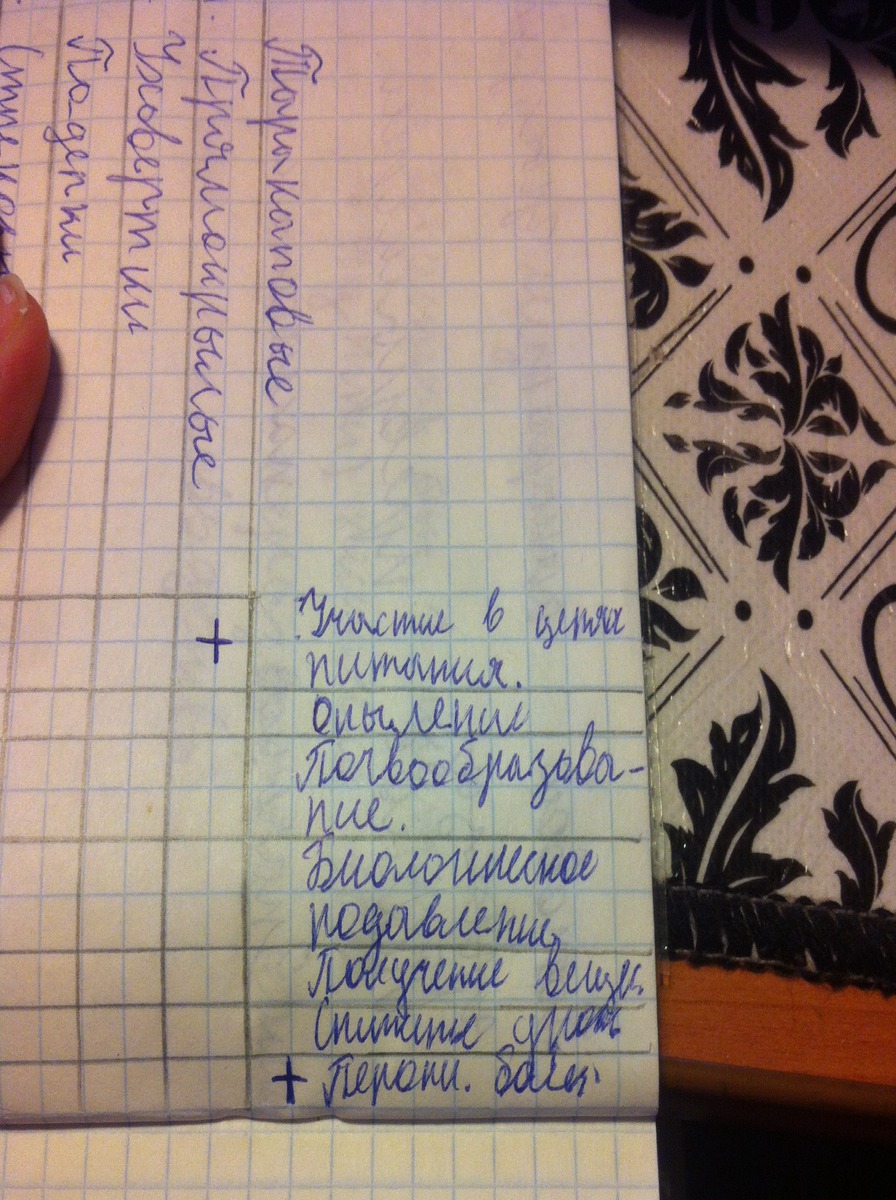 Таракановые
Прямокрылые
Уховертки
Поденки
Участие в цепях
питания.
опыление
Почвообразова-
ние.
Биологическое
подавление
Получение вещ.
Снижение урож
+
+ Перенос. болез.